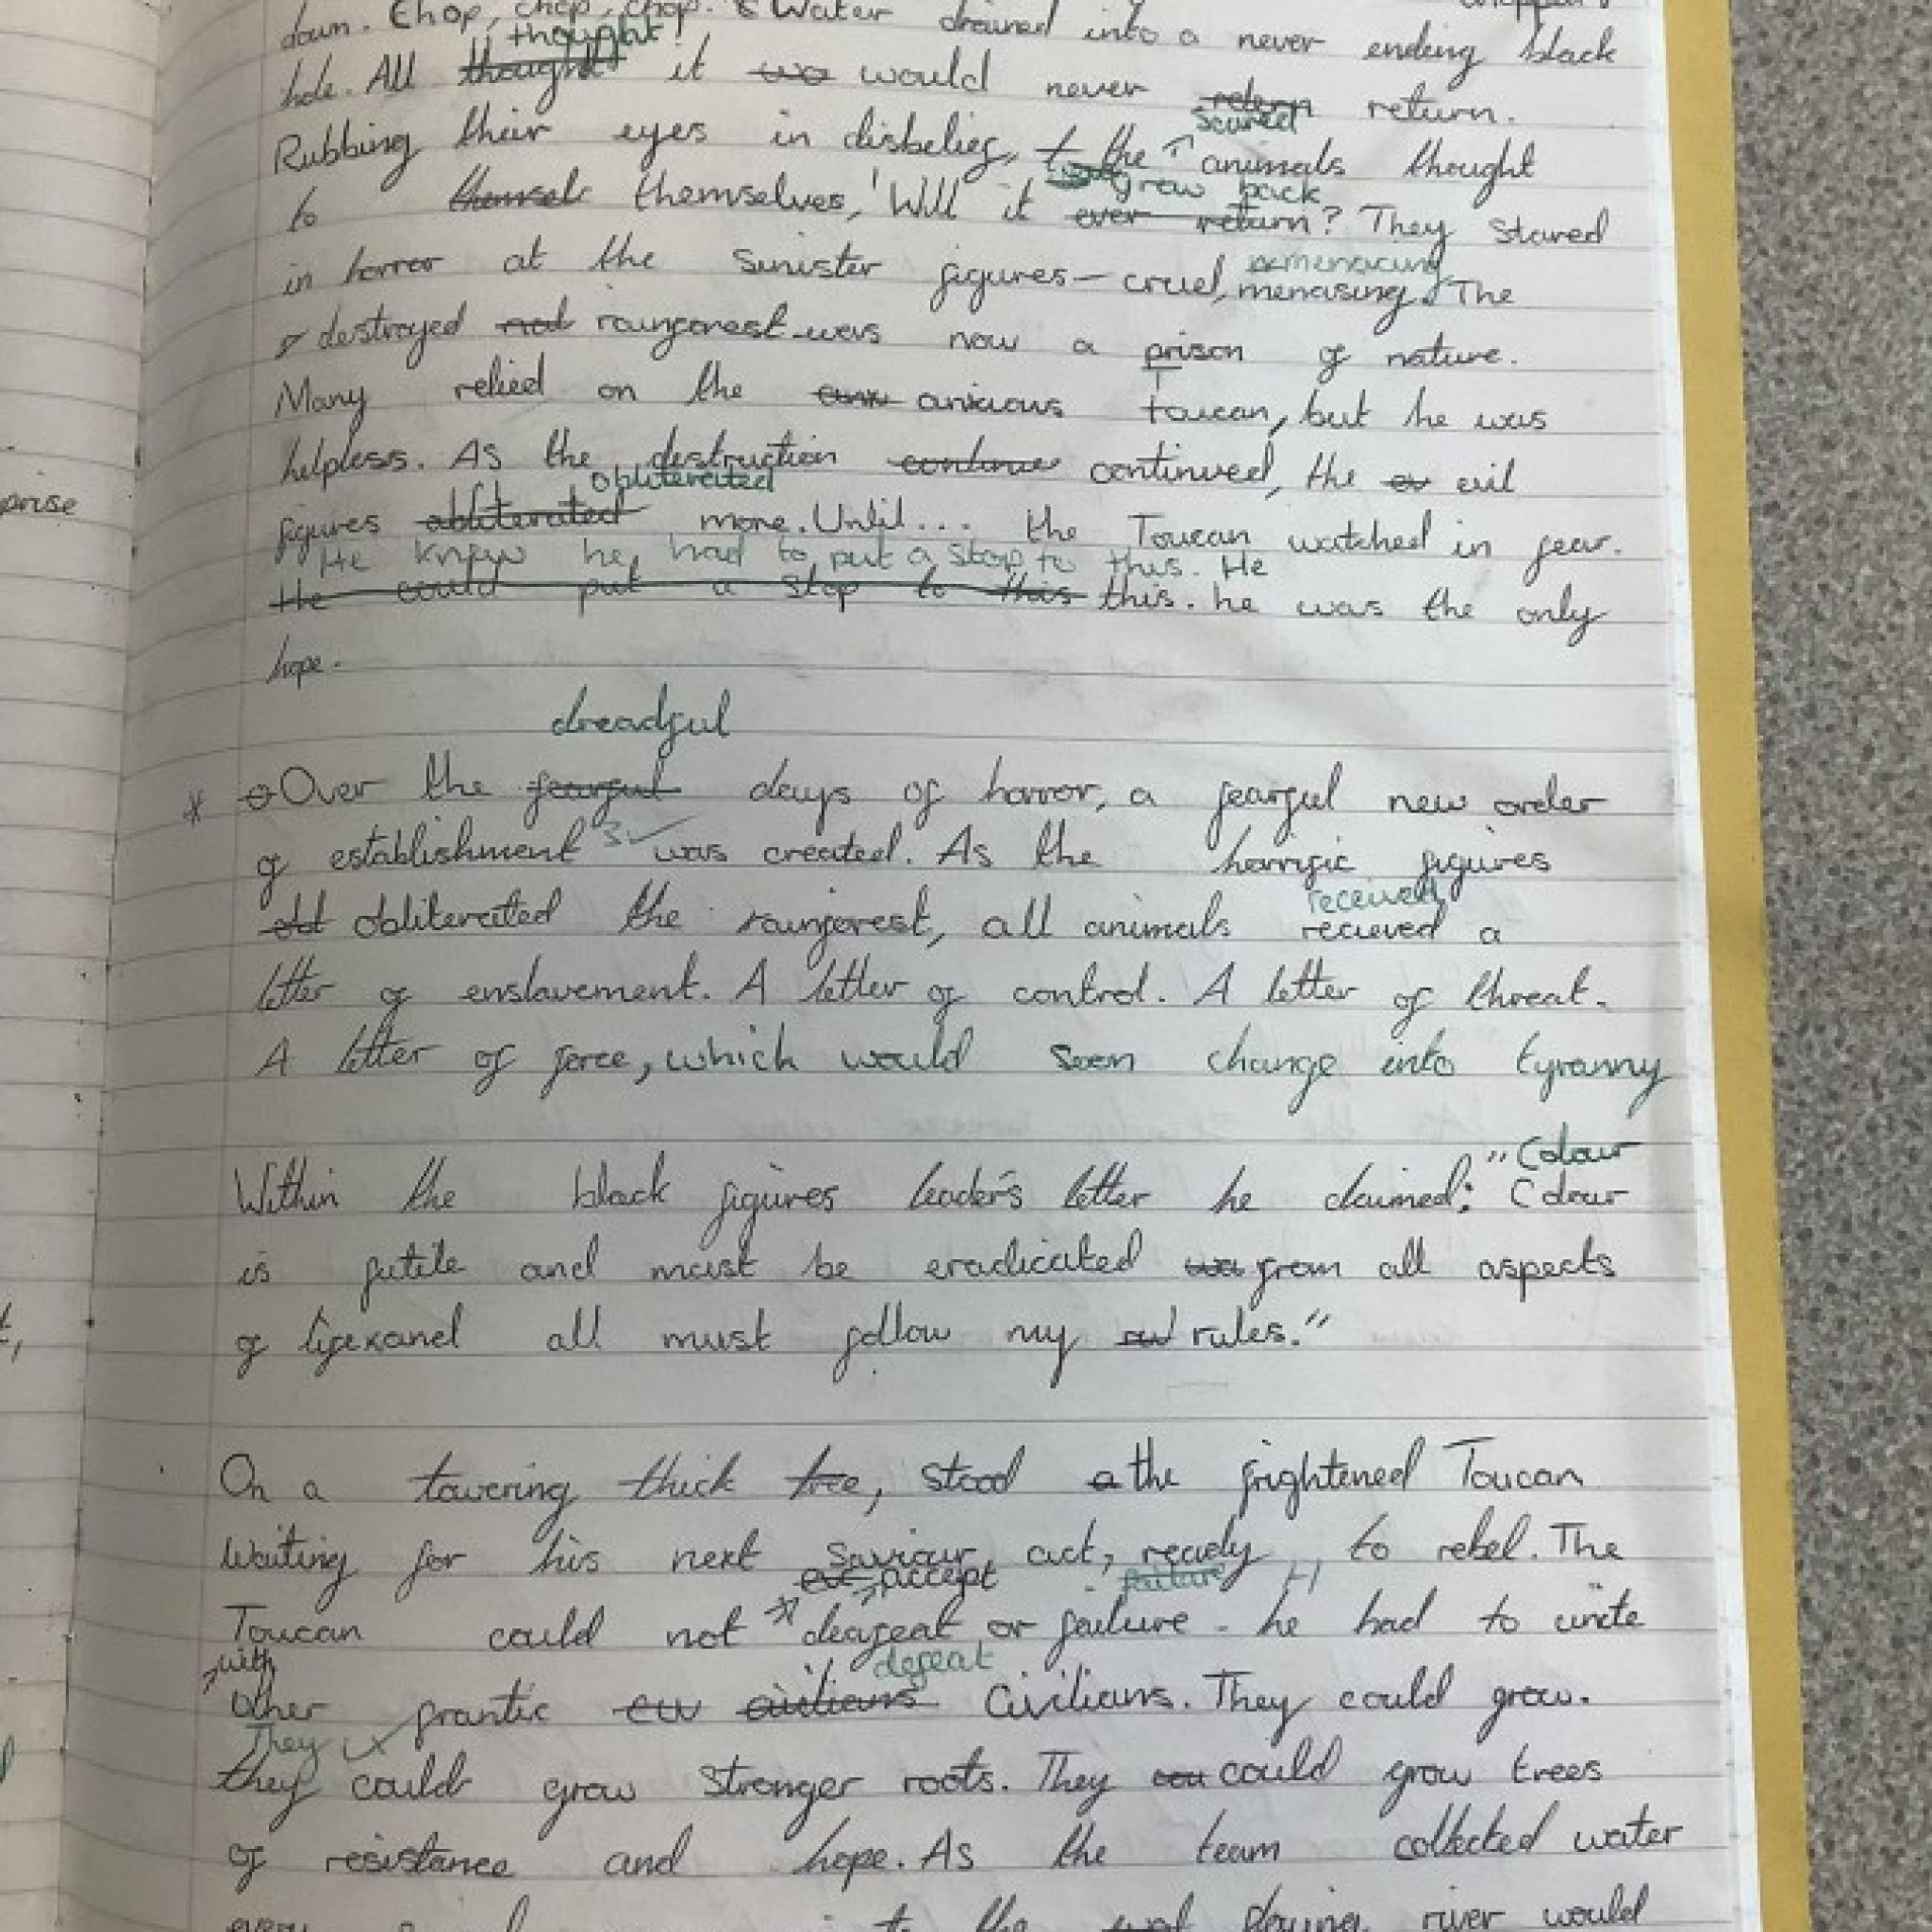 down. Chop, chop, chop. Water drained into a never ending black
thought!
hole. All thought it wo would never retern return.
scared
Rubbing their eyes in disbelief, t the animals thought
grow back
to themselt themselves, 'Will it ever return? They stared
in horror at the sinister figures - cruel, menasing. The
menacing
destroyed rainforest was now a prison of nature.
Many relied on the anxious toucan, but he was
T
helpless. As the destruction continue continued, the ev evil
obliterated
figures abliterated more. Until... the Toucan watched in fear.
He knew he had to put a stop to this. He
He could put a stop to this this. he was the only
hope.
dreadful
Over the fearful days of horror, a fearful new order
of establishment was created. As the horrific figures
received
obliterated the rainforest, all animals recieved a
letter of enslavement. A letter of control. A letter of threat.
A letter of force, which would soon change into tyranny
"Colour
Within the black figures leader's letter he claimed: Colour
is futile and must be eradicated from all aspects
of life and all must follow my rules."
On a towering thick tree, stood a the frightened Toucan
waiting for his next saviour act, ready, to rebel. The
accept failure H
Toucan could not deafeat or failure - he had to unite
with defeat
other frantic civilians Civilians. They could grow.
They
they could grow stronger roots. They cou could grow trees
of resistance and hope. As the team collected water
to the flowing river would
prise